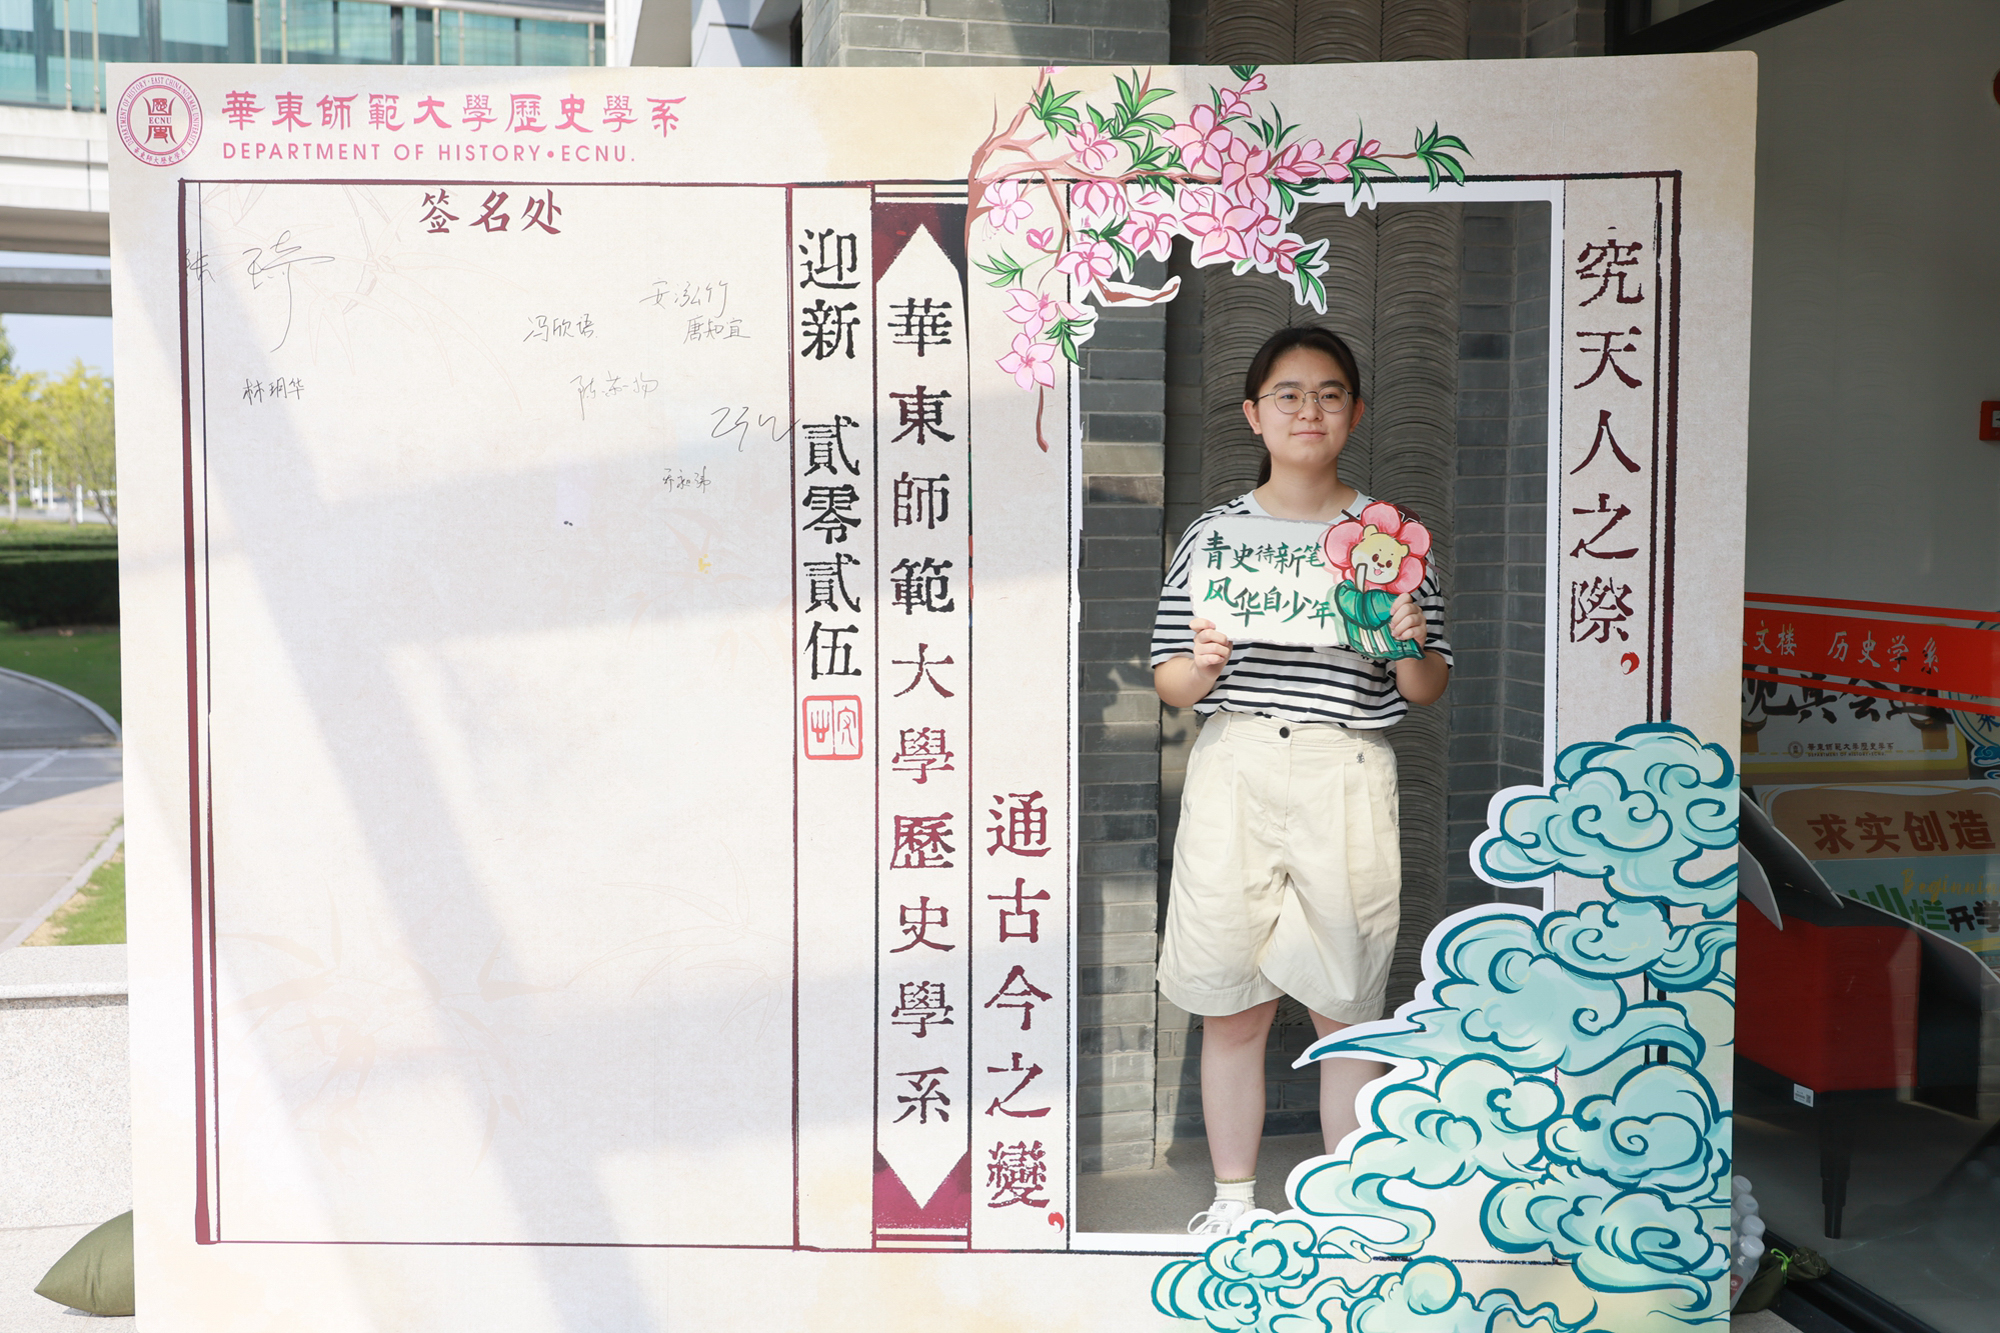 華東師範大學歷史學系
DEPARTMENT OF HISTORY•ECNU.
DEPARTMENT OF HISTORY · EAST CHINA NORMAL UNIVERSITY
ECNU
签名处
张琦
安泓竹
冯欣语
唐知宜
林玥华
迎新 貳零貳伍
華東師範大學歷史學系
通古今之變
究天人之際
青史待新笔
风华自少年
文楼 历史学系
華東師範大學歷史學系
求实创造
Beginning
开学